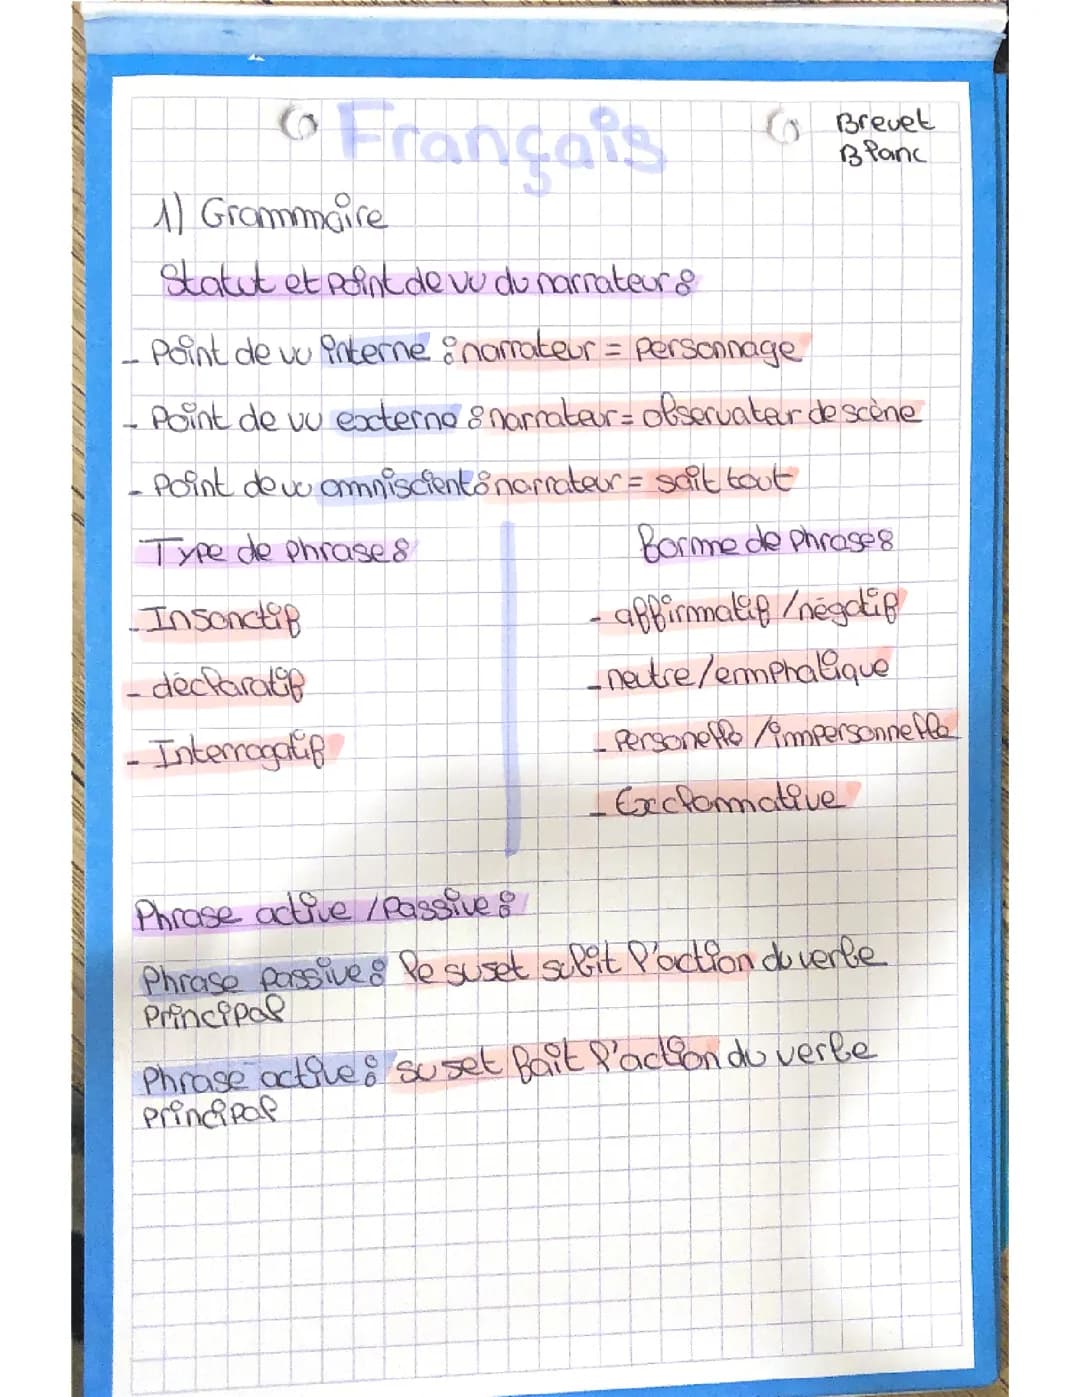 Français
Brevet
Blanc
1) Grammaire
Statut et point de vu du narrateur :
- Point de vu interne : narrateur = personnage
- Point de vu externe : narrateur = observateur de scène
- Point de vu omniscient : narrateur = sait tout
Type de phrases
- Insonctif
- déclaratif
- Interrogatif
Forme de phrases
- affirmatif / négatif
- neutre / emphatique
- Personelle / impersonnelle
- Exclammative
Phrase active / passive :
Phrase passive : le suset subit l'action du verbe
principal
Phrase active : suset fait l'action du verbe
principal